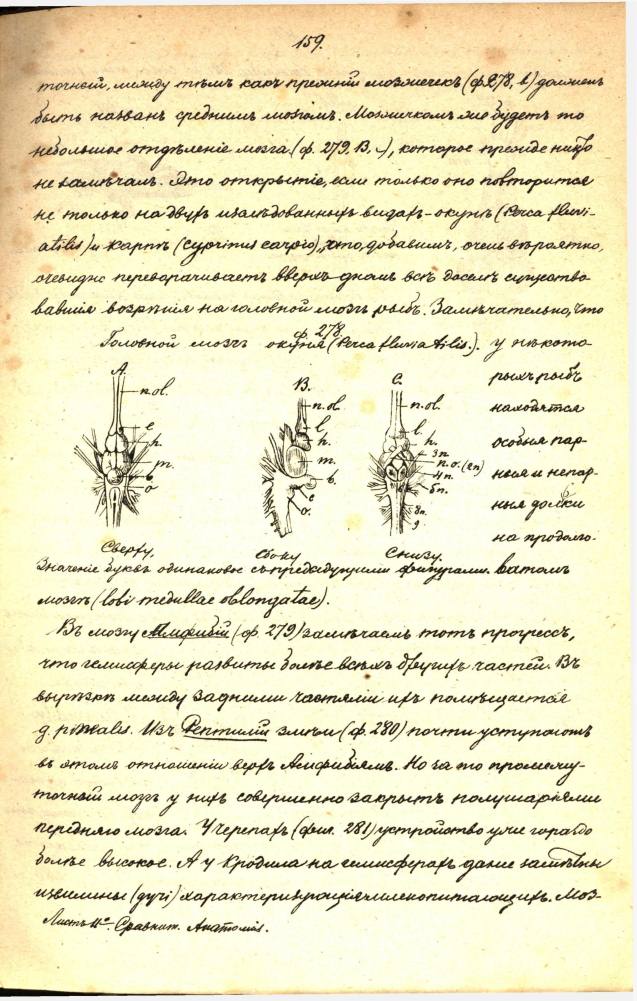 159.
точный, между тѣмъ какъ прежній мозжечекъ (ф. 278, b) долженъ
быть названъ среднимъ мозгомъ. Мозжечкомъ же будетъ то
небольшое отдѣленіе мозга (ф. 279 B, ), которое прежде никто
не замѣчалъ. Это открытіе, если только оно повторится
не только на двухъ изслѣдованныхъ видахъ - окунѣ (Perca fluvi-
atilis) и карпѣ (cyprinus carpio), что, добавимъ, очень вѣроятно,
очевидно переворачиваетъ вверхъ дномъ всѣ доселѣ существо
вавшія воззрѣнія на головной мозгъ рыбъ. Замѣчательно, что
ф. 278.
Головной мозгъ окуня (Perca fluviatilis). у нѣкото
рыхъ рыбъ
находятся
особыя пар-
ныя и непар-
ныя дольки
на продолго-
A.
n.ol.
e
h.
m.
b
o
Сверху.
B.
n.ol.
l
h.
m.
b.
e
o.
Сбоку
C.
n.ol.
l.
h.
3n.
n.o. (2n)
4n.
5n.
8n.
9
Снизу.
Значеніе буквъ одинаковое съ предыдущими фигурами. ватомъ
мозгѣ (lobi medullae oblongatae).
Въ мозгу Амфибій (ф. 279) замѣчаемъ тотъ прогрессъ,
что гемисферы развиты болѣе всѣхъ другихъ частей. Въ
вырѣзкѣ между задними частями ихъ помѣщается
g. pinealis. Изъ Рептилій змѣи (ф. 280) почти уступаютъ
въ этомъ отношеніи верх. Амфибіямъ. Но за то промежу-
точный мозгъ у нихъ совершенно закрытъ полушаріями
передняго мозга. У черепахъ (фиг. 281) устройство уже гораздо
болѣе высокое. А у Крокодила на гемисферахъ даже замѣтны
извилины (дуги) характеризующія млекопитающихъ. Моз-
Листъ 40. Сравнит. Анатомія.